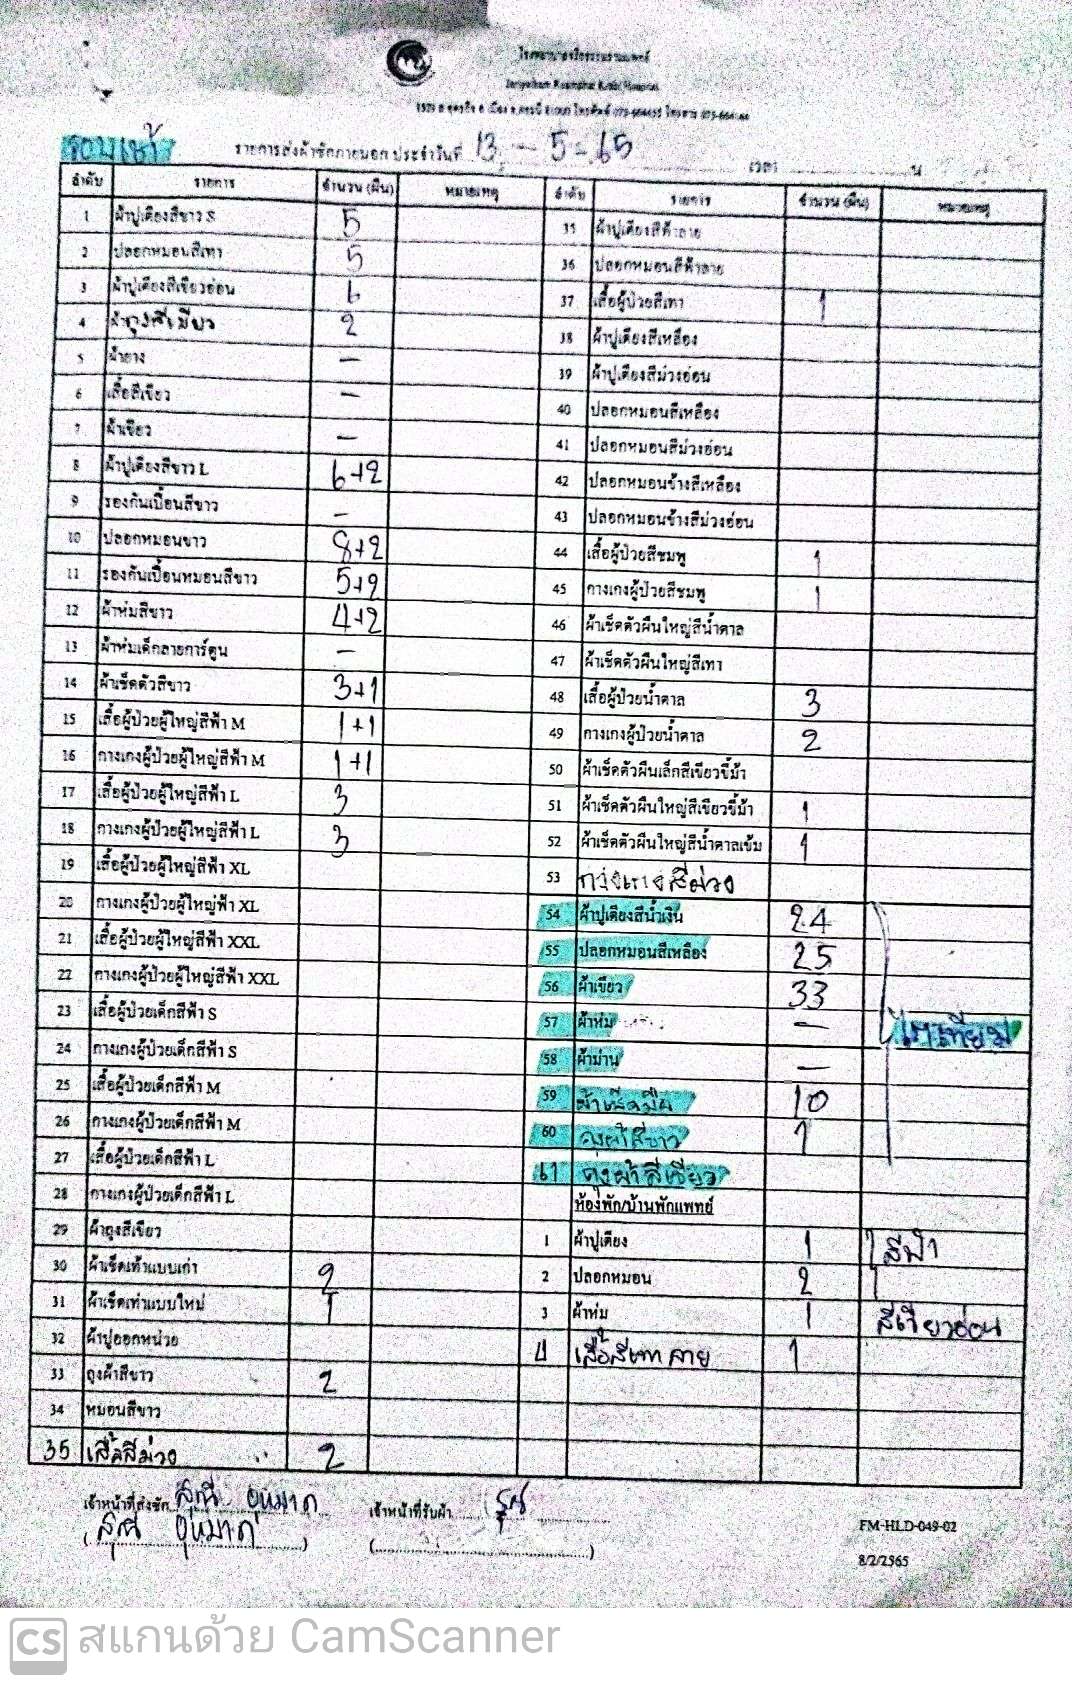 โรงพยาบาลจริยธรรมรวมแพทย์
รอบเช้า
รายการส่งผ้าซักภายนอก ประจำวันที่ 13 - 5 - 65 เวลา น
ลำดับ รายการ จำนวน (ผืน) หมายเหตุ ลำดับ รายการ จำนวน (ผืน) หมายเหตุ
1 ผ้าปูเตียงสีขาว S 5
2 ปลอกหมอนสีเทา 5
3 ผ้าปูเตียงสีเขียวอ่อน 6
4 ผ้าถุงสีเขียว 2
5 ผ้ายาง -
6 เสื้อสีเขียว -
7 ผ้าเขียว -
8 ผ้าปูเตียงสีขาว L 6+2
9 รองกันเปื้อนสีขาว -
10 ปลอกหมอนขาว 8+2
11 รองกันเปื้อนหมอนสีขาว 5+2
12 ผ้าห่มสีขาว 4+2
13 ผ้าห่มเด็กลายการ์ตูน -
14 ผ้าเช็ดตัวสีขาว 3+1
15 เสื้อผู้ป่วยผู้ใหญ่สีฟ้า M 1+1
16 กางเกงผู้ป่วยผู้ใหญ่สีฟ้า M 1+1
17 เสื้อผู้ป่วยผู้ใหญ่สีฟ้า L 3
18 กางเกงผู้ป่วยผู้ใหญ่สีฟ้า L 3
19 เสื้อผู้ป่วยผู้ใหญ่สีฟ้า XL
20 กางเกงผู้ป่วยผู้ใหญ่สีฟ้า XL
21 เสื้อผู้ป่วยผู้ใหญ่สีฟ้า XXL
22 กางเกงผู้ป่วยผู้ใหญ่สีฟ้า XXL
23 เสื้อผู้ป่วยเด็กสีฟ้า S
24 กางเกงผู้ป่วยเด็กสีฟ้า S
25 เสื้อผู้ป่วยเด็กสีฟ้า M
26 กางเกงผู้ป่วยเด็กสีฟ้า M
27 เสื้อผู้ป่วยเด็กสีฟ้า L
28 กางเกงผู้ป่วยเด็กสีฟ้า L
29 ผ้าถุงสีเขียว
30 ผ้าเช็ดเท้าแบบเก่า 2
31 ผ้าเช็ดเท้าแบบใหม่ 1
32 ผ้าปูออกหน่วย
33 ถุงผ้าสีขาว 2
34 หมอนสีขาว
35 เสื้อสีม่วง 2
35 ผ้าปูเตียงสีฟ้าลาย
36 ปลอกหมอนสีฟ้าลาย
37 เสื้อผู้ป่วยสีเทา 1
38 ผ้าปูเตียงสีเหลือง
39 ผ้าปูเตียงสีม่วงอ่อน
40 ปลอกหมอนสีเหลือง
41 ปลอกหมอนสีม่วงอ่อน
42 ปลอกหมอนข้างสีเหลือง
43 ปลอกหมอนข้างสีม่วงอ่อน
44 เสื้อผู้ป่วยสีชมพู 1
45 กางเกงผู้ป่วยสีชมพู 1
46 ผ้าเช็ดตัวผืนใหญ่สีน้ำตาล
47 ผ้าเช็ดตัวผืนใหญ่สีเทา
48 เสื้อผู้ป่วยน้ำตาล 3
49 กางเกงผู้ป่วยน้ำตาล 2
50 ผ้าเช็ดตัวผืนเล็กสีเขียวขี้ม้า
51 ผ้าเช็ดตัวผืนใหญ่สีเขียวขี้ม้า 1
52 ผ้าเช็ดตัวผืนใหญ่สีน้ำตาลเข้ม 1
53 กางเกงสีม่วง
54 ผ้าปูเตียงสีน้ำเงิน 24
55 ปลอกหมอนสีเหลือง 25
56 ผ้าเขียว 33
57 ผ้าห่ม - ไตเทียม
58 ผ้าม่าน -
59 ผ้าเช็ดมือ 10
60 ถุงผ้าสีขาว 1
61 ถุงผ้าสีเขียว
ห้องพัก/บ้านพักแพทย์
1 ผ้าปูเตียง 1 สีฟ้า
2 ปลอกหมอน 2
3 ผ้าห่ม 1 สีเขียวอ่อน
4 เสื้อสีเทาลาย 1
เจ้าหน้าที่ส่งซัก เจ้าหน้าที่รับผ้า
FM-HLD-049-02
8/2/2565
CS สแกนด้วย CamScanner